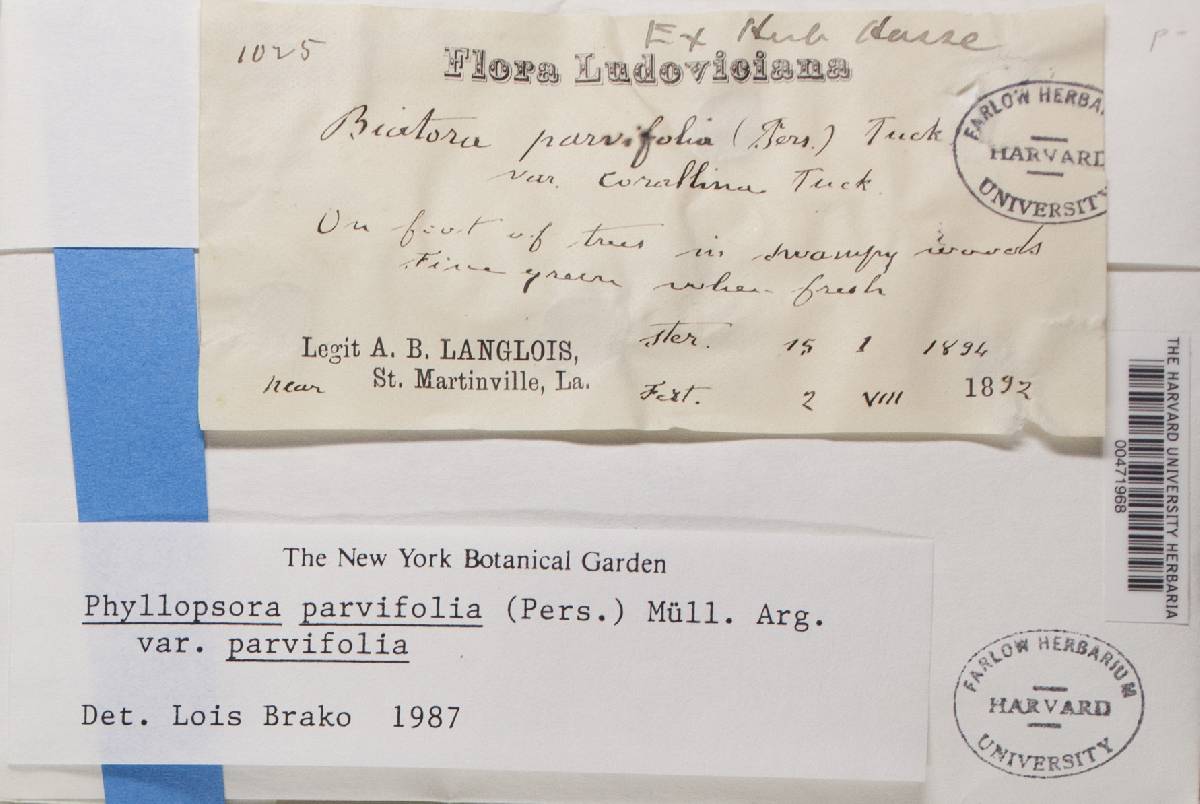 Ex Herb Hasse
1025
Flora Ludoviciana
Biatora parvifolia (Pers.) Tuck
var. corallina Tuck.
On foot of trees in swampy woods
Fine green when fresh
Legit A. B. LANGLOIS,
near St. Martinville, La.
Ster. 15 1 1894
Fert. 2 VIII 1892
FARLOW HERBA
HARVARD
UNIVERSITY
P-
THE HARVARD UNIVERSITY HERBARIA
00471968
The New York Botanical Garden
Phyllopsora parvifolia (Pers.) Müll. Arg.
var. parvifolia
Det. Lois Brako 1987
FARLOW HERBARIUM
HARVARD
UNIVERSITY